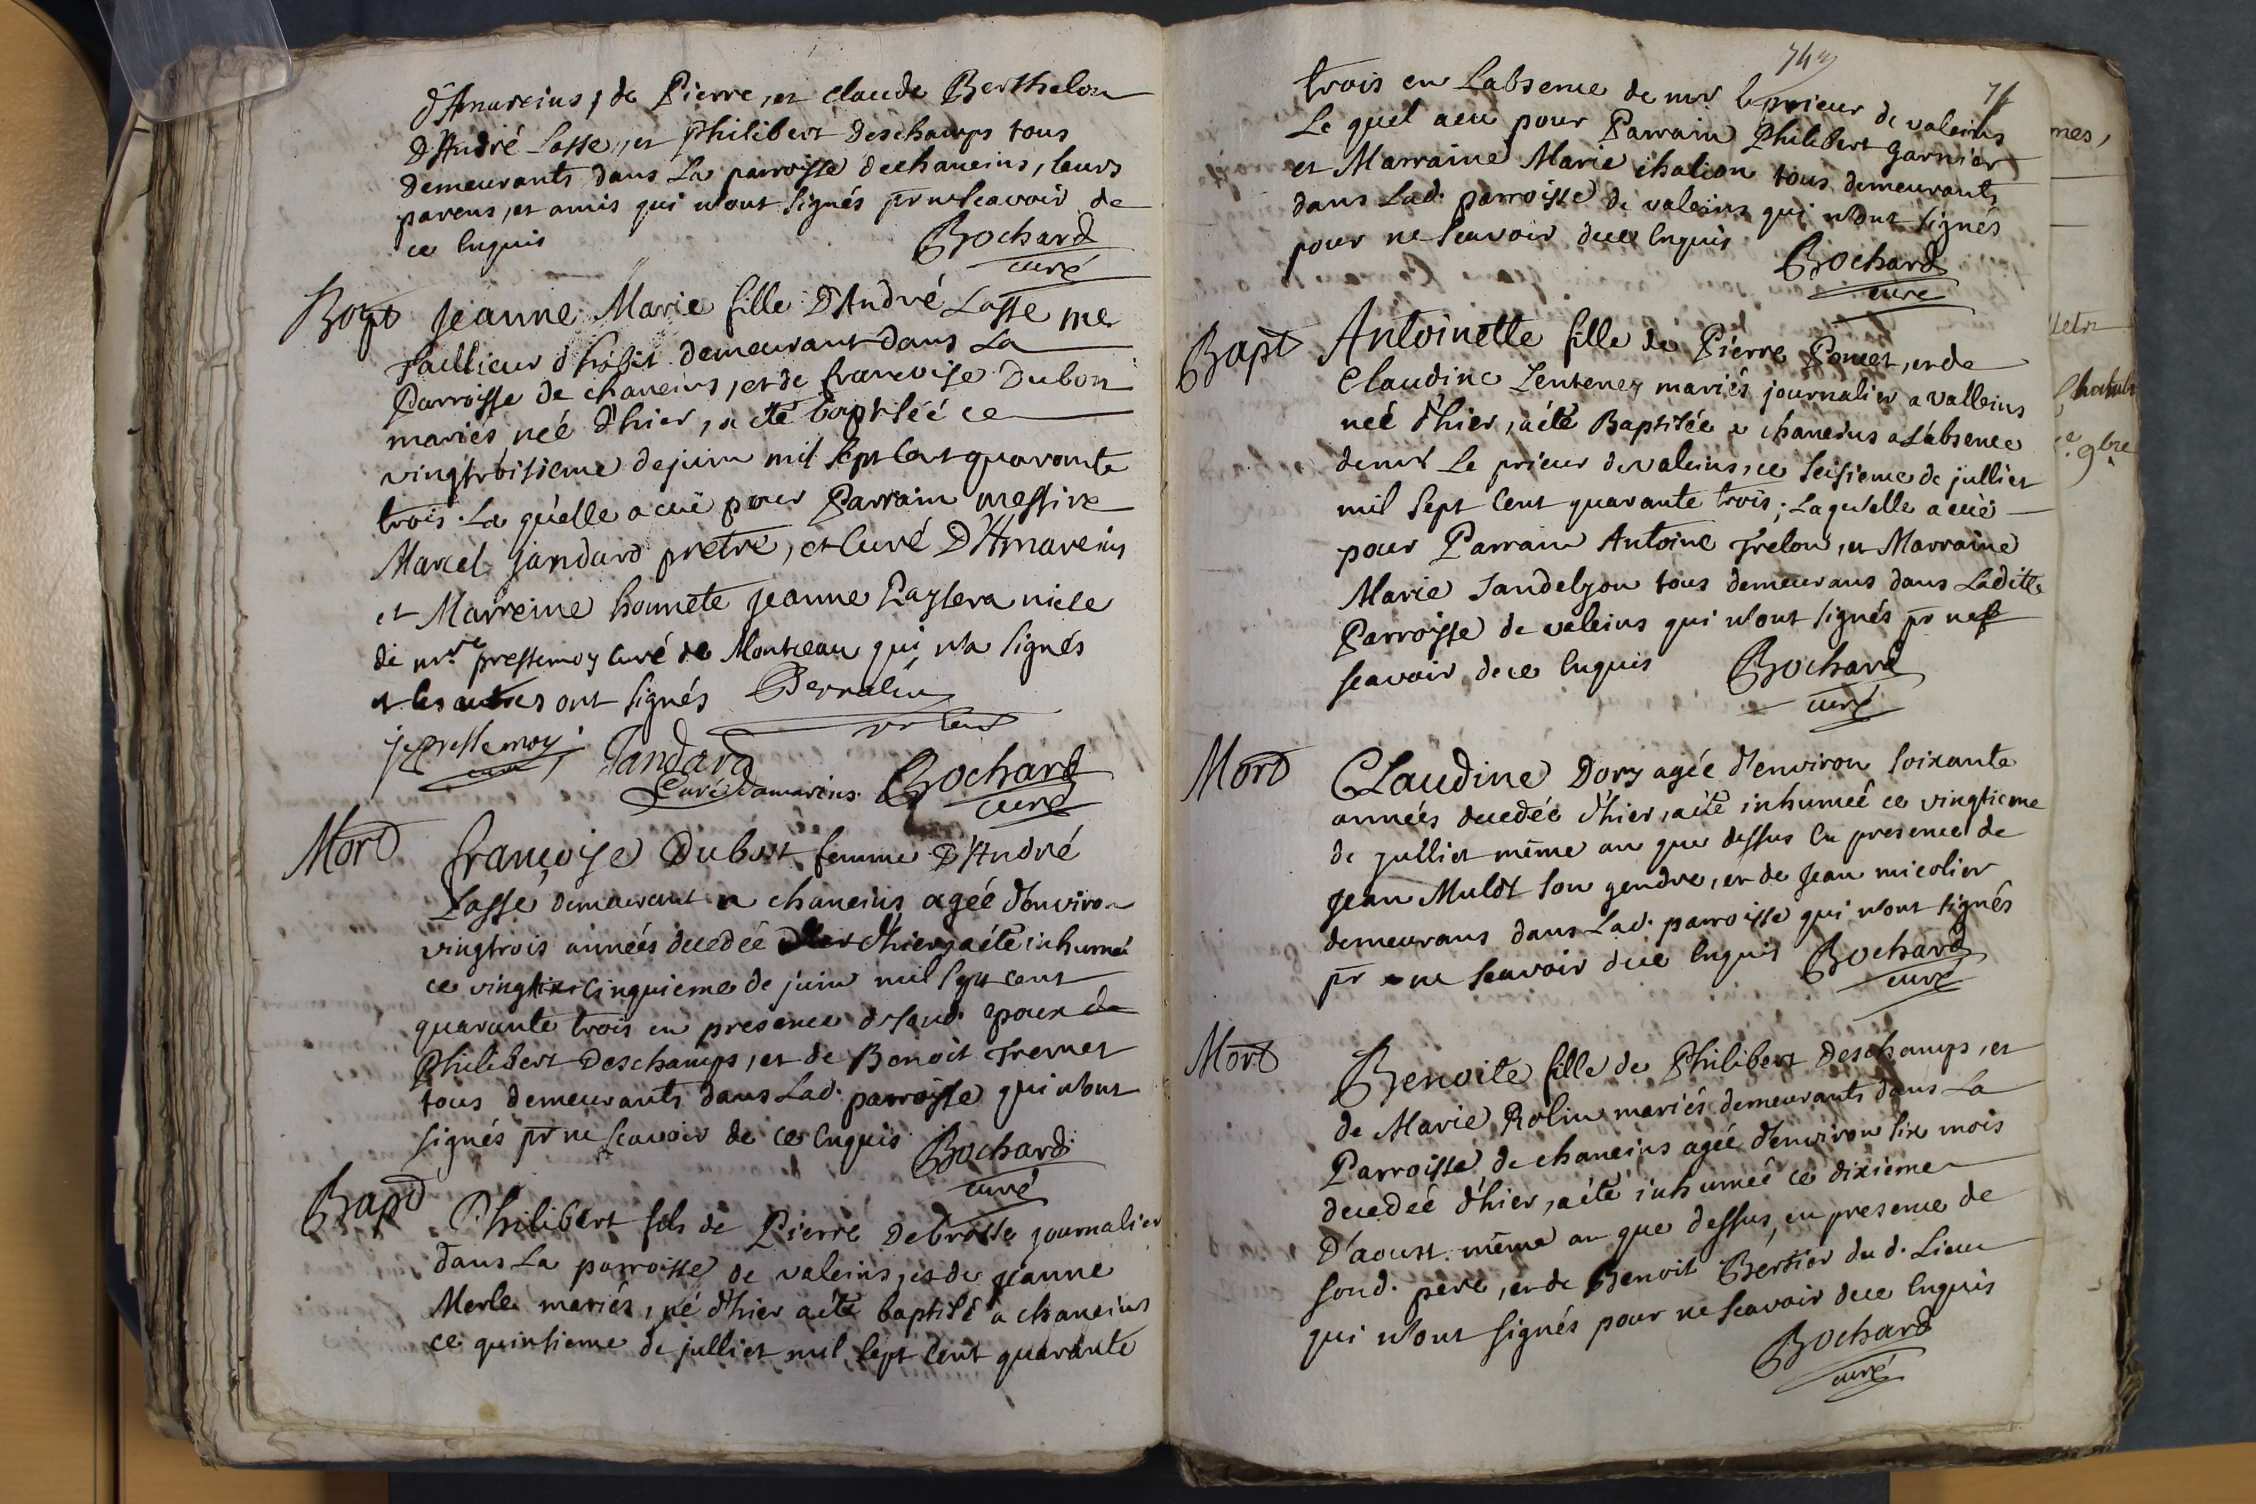 d'Amareins, de Pierre, et claude Berthelon
D'André Lasse, et Philibert deschamps tous
demeurants dans La parroisse de chaneins, leurs
parens, et amis qui n'ont signés pr ne scavoir de
ce enquis
Bochard
curé
Bapt Jeanne Marie fille D'André Lasse me
taillieur d'habit demeurant dans La
Parroisse de chaneins, et de francoise Dubost
mariés, neé d'hier, a eté baptiseé ce
vingtroisieme de juin mil sept cent quarante
trois. La quelle a eu pour Parrain messire
Marcel jandard pretre, et Curé D'Amareins
et Marreine honnete Jeanne niece
de mre pressemoy curé de Montceau qui n'a signés
et les autres ont signés
pressemoy
curé
Jandard
Curé damareins
Bochard
curé
Mort francoise Dubost femme D'André
Lasse demeurant a chaneins ageé d'environ
vingtrois années decedeé d'hier, a eté inhumeé
ce vingt cinquieme de juin mil sept cent
quarante trois en presence de epoux de
Philibert Deschamps, et de Benoit Tremet
tous demeurants dans Lad. parroisse qui n'ont
signés pr ne scavoir de ce enquis
Bochard
curé
Bapt Philibert fils de Pierre Debrosse journalier
dans La parroisse de valeins, et de Jeanne
Merle mariés, né d'hier a eté baptisé a chaneins
ce quinsieme de julliet mil sept cent quarante
74
trois en L'absence de mr le prieur de valeins
Le quel a eu pour Parrain Philibert Garnier
et Marraine Marie chalion tous demeurants
dans Lad. parroisse de valeins qui n'ont signés
pour ne scavoir de ce enquis
Bochard
curé
Bapt Antoinette fille de Pierre Poncet, et de
Claudine mariés journalier a valleins
neé d'hier, a eté Baptisée a chaneins a L'absence
de mr Le prieur de valeins, ce seisieme de julliet
mil sept cent quarante trois; La quelle a eüe
pour Parrain Antoine Trelon, et Marraine
Marie Jandelyon tous demeurans dans Ladite
Parroisse de valeins qui n'ont signés pr ne
scavoir de ce enquis
Bochard
curé
Mort Claudine Dory agée d'environ soixante
années decedée d'hier, a eté inhumeé ce vingtieme
de julliet même an que dessus en presence de
Jean son gendre, et de Jean micolier
demeurans dans Lad. parroisse qui n'ont signés
pr ne scavoir de ce enquis
Bochard
curé
Mort Benoite fille de Philibert Deschamps, et
de Marie Rolin mariés demeurants dans La
Parroisse de chaneins ageé d'environ six mois
decedeé d'hier, a eté inhumeé ce dixieme
D'aoust même an que dessus, en presence de
sond. pere, et de Benoit Bertier du d. Lieu
qui n'ont signés pour ne scavoir de ce enquis
Bochard
curé